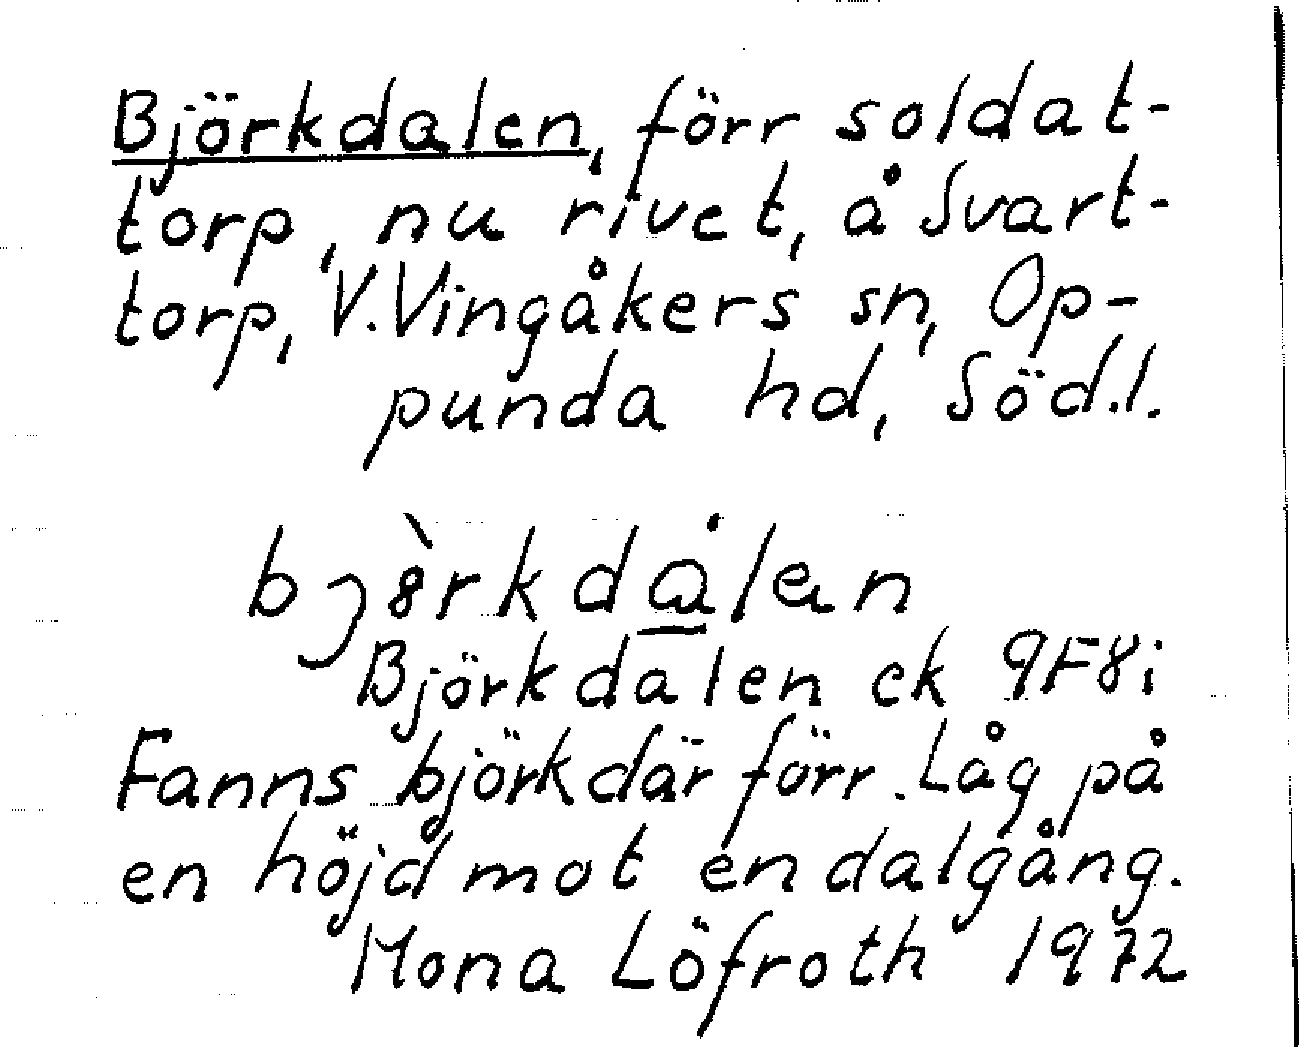 Björkdalen, förr soldat-
torp, nu rivet, å Svart-
torp, V. Vingåkers sn, Op-
punda hd, Söd.l.
Björkdalen ek 9F8i
Fanns björk där förr. Låg på
en höjd mot en dalgång.
Mona Löfroth 1972